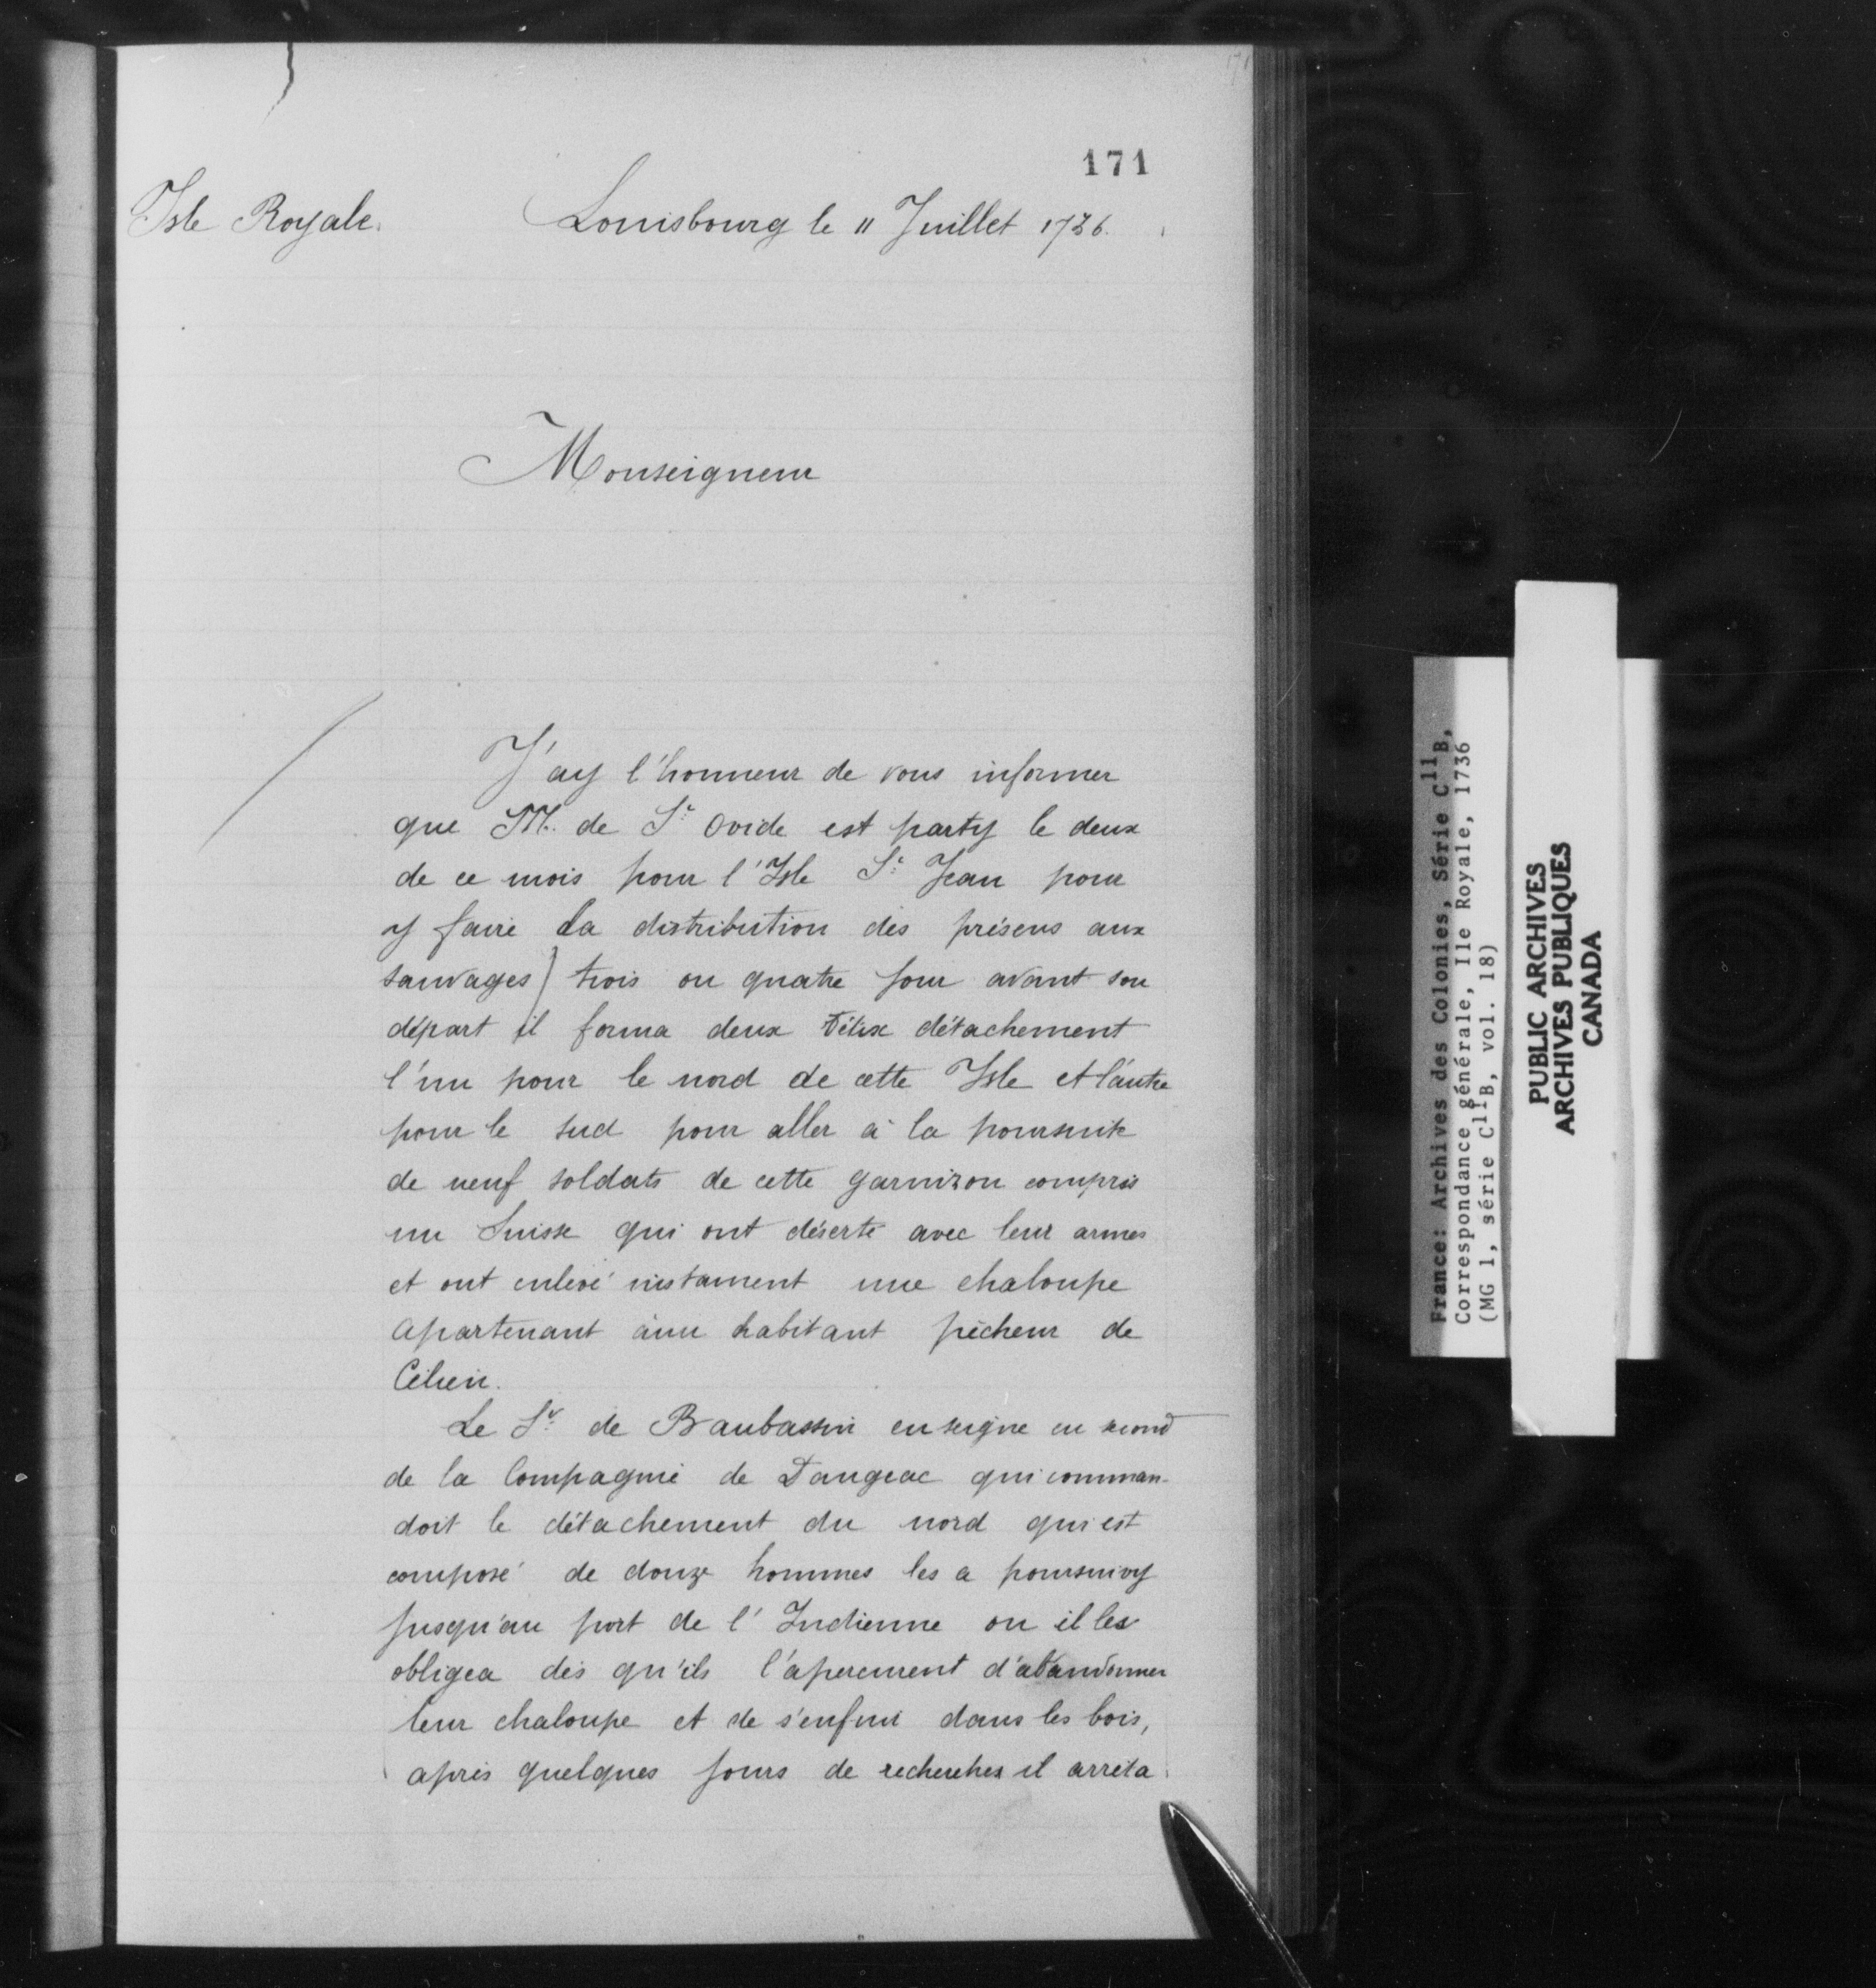 171
Isle Royale. Louisbourg le 11 Juillet 1736.
Monseigneur
J'ay l'honneur de vous informer
que M. de St Ovide est party le deux
de ce mois pour l'Isle St Jean pour
y faire la distribution des présens aux
sauvages) trois ou quatre jour avant son
départ il forma deux détachement
l'un pour le nord de cette Isle et l'autre
pour le sud pour aller à la poursuite
de neuf soldats de cette garnizon compris
un Suisse qui ont déserté avec leur armes
et ont enlevé une chaloupe
apartenant à un habitant pêcheur de

Le Sr de Baubassin enseigne en second
de la Compagnie de Dangeac qui comman-
doit le détachement du nord qui est
composé de douze hommes les a poursuivy
jusqu'au port de l'Indienne ou il les
obligea dès qu'ils l'aperçurent d'abandonner
leur chaloupe et de s'enfuir dans les bois,
après quelques jours de recherches il arrêta
France: Archives des Colonies, Série C11B,
Correspondance générale, Ile Royale, 1736
(MG 1, série C11B, vol. 18)
PUBLIC ARCHIVES
ARCHIVES PUBLIQUES
CANADA